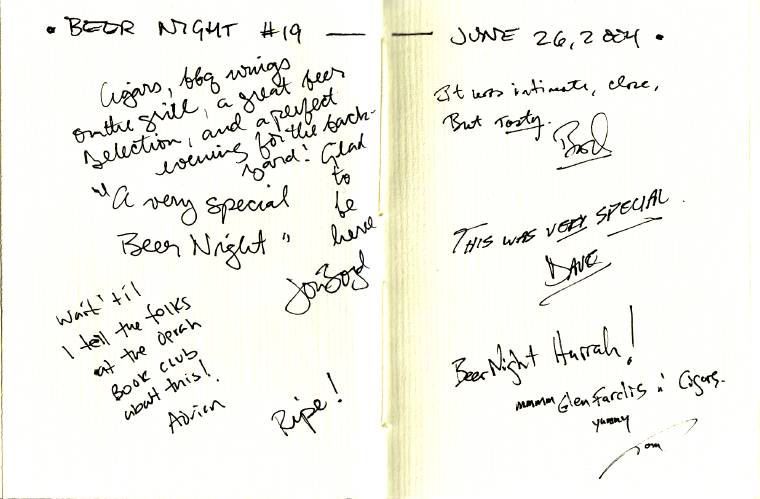 • BEER NIGHT #19 —
Cigars, bbq wings
on the grill, a great beer
selection, and a perfect
evening for the back-
yard! Glad
to
be
here
"A very special
Beer Night"
Jon Boyd
Wait 'til
I tell the folks
at the Oprah
Book club
about this!
Adrien
Ripe!
— JUNE 26, 2004 •
It was intimate, close,
But Tasty.
Brad
THIS WAS VERY SPECIAL.
DAVE
Beer Night Hurrah!
mmmm Glenfarclis n' Cigars.
yummy
Tom